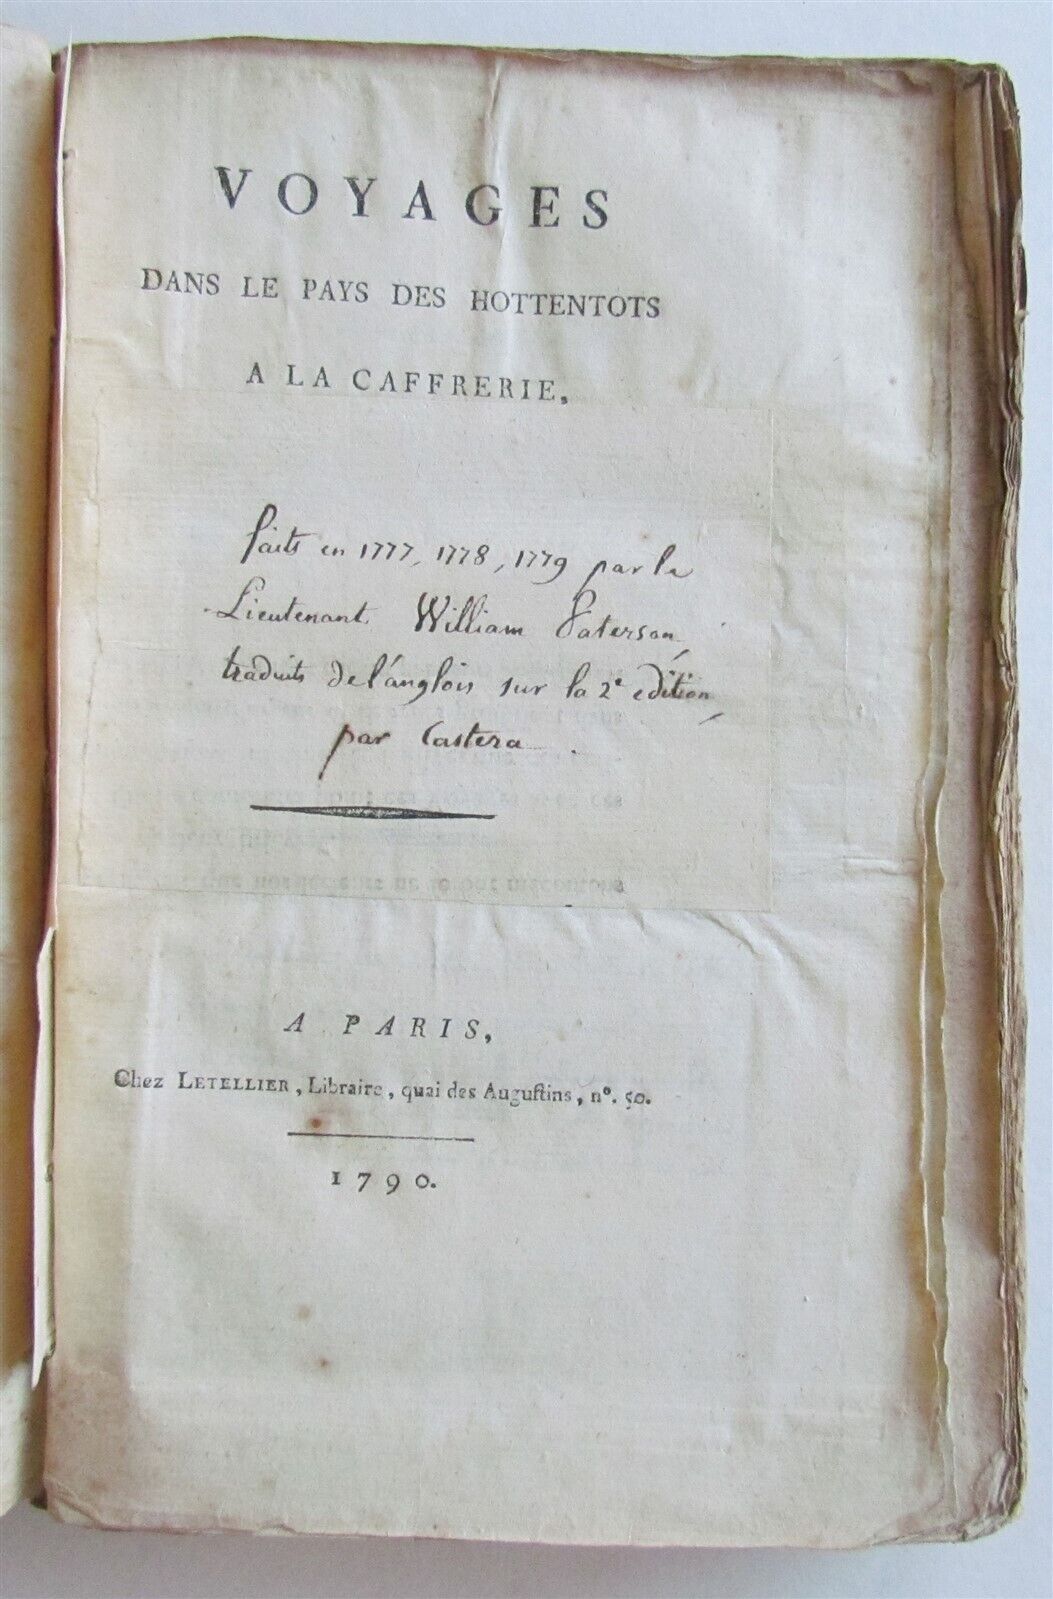 VOYAGES
DANS LE PAYS DES HOTTENTOTS
A LA CAFFRERIE,
faits en 1777, 1778, 1779 par le
Lieutenant William Paterson,
traduits de l'anglois sur la 2e edition,
par Castera.
A PARIS,
Chez LETELLIER, Libraire, quai des Auguſtins, n°. 50.
1790.